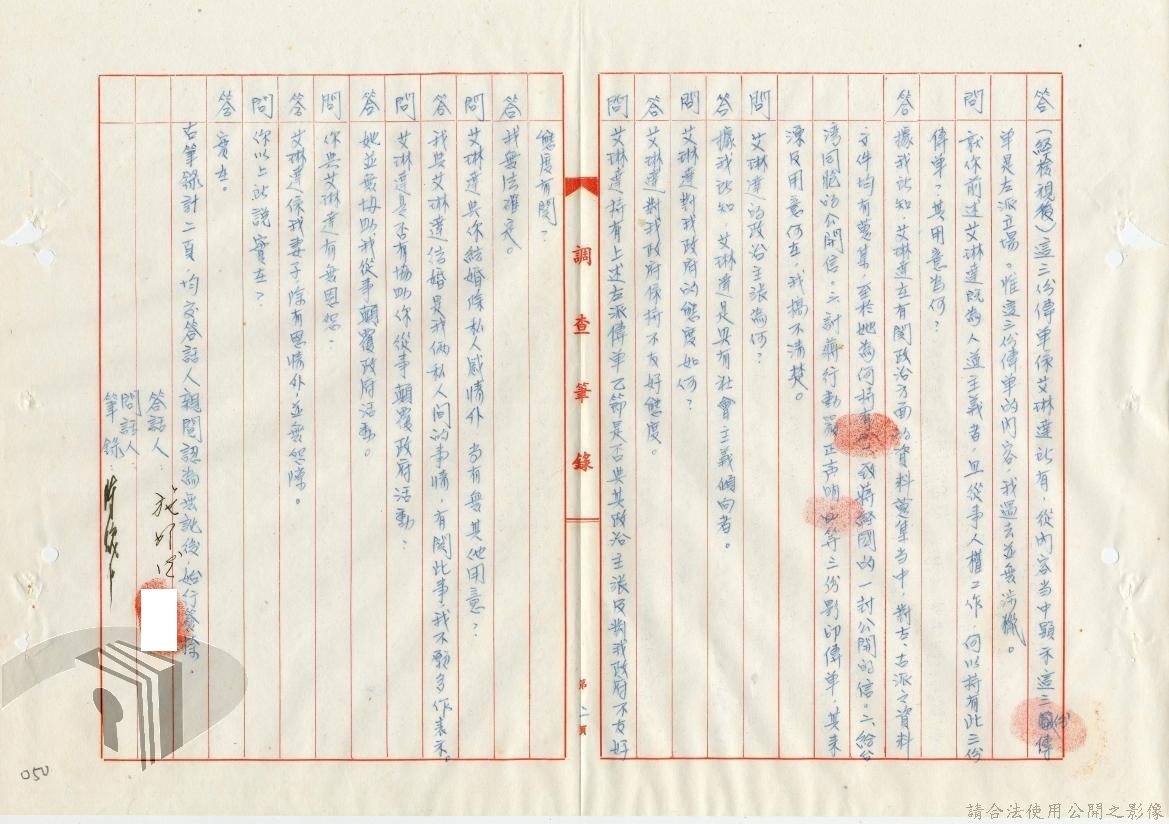 答(經檢視後)這三份傳單係艾琳達所有,從內容當中顯示這三份傳
單是左派立場。惟這三份傳單的內容,我過去並無涉獵。
問 就你前述艾琳達既為人道主義者,且從事人權工作,何以持有此三份
傳單,其用意為何?
答 據我所知,艾琳達在有関政治方面的資料蒐集當中,對左、右派之資料
文件均有蒐集,至於她為何持有 致蔣經國的一封公開的信。二、給台
湾同胞的公開信。三、討蔣行動 正声明 等三份影印傳單,其來
源及用意何在,我搞不清楚。
問 艾琳達的政治主張為何?
答 據我所知,艾琳達是具有社會主義傾向者。
問 艾琳達對我政府的態度如何?
答 艾琳達對我政府保持不友好態度。
問 艾琳達持有上述左派傳單乙節是否與其政治主張及對我政府不友好
調查筆錄
第二頁
態度有関?
答 我無法確定。
問 艾琳達與你結婚除私人感情外,尚有無其他用意?
答 我與艾琳達結婚是我倆私人間的事情,有関此事,我不願多作表示。
問 艾琳達是否有協助你從事顛覆政府活動?
答 她並無協助我從事顛覆政府活動。
問 你與艾琳達有無恩怨?
答 艾琳達係我妻子,除有恩情外,並無怨隙。
問 你以上所說實在?
答 實在。
右筆錄計二頁,均交答話人親閱認為無訛後,始行簽捺。
答話人: 施明德
問話人:
筆錄:
050
請合法使用公開之影像